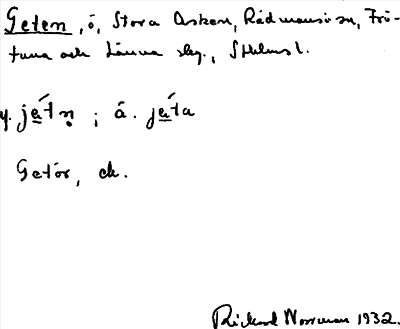 Geten, ö, Stora Asken, Rådmansö sn, Frö-
tuna och Länna skg., Sthlms l.
y. ja̲´tṇ ; å. ja̲´ta
Getör, ek.
Rickard Norrman 1932.